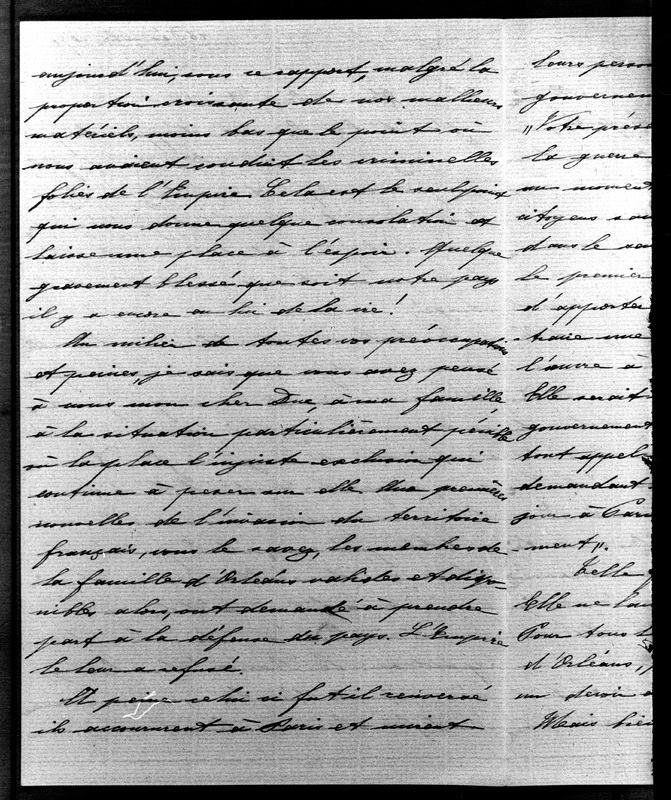 aujourd'hui, sous ce rapport, malgré la
proportion croissante de nos malheurs
matériels, moins bas que le point où
nous avaient conduit les criminelles
folies de l'Empire. Cela est le seul point
qui nous donne quelque consolation et
laisse une place à l'espoir. Quelque
gravement blessé que soit notre pays
il y a encore en lui de la vie!
Au milieu de toutes vos préoccupations
et peines, je sais que vous avez pensé
à nous mon cher Duc, à ma famille
à la situation particulièrement pénible
où la place l'injuste exclusion qui
continue à peser sur elle. Aux premières
nouvelles de l'invasion du territoire
français, vous le savez, les membres de
la famille d'Orléans valides et dispo-
nibles alors, ont demandé à prendre
part à la défense du pays. L'Empire
le leur a refusé.
A peine celui ci fut il renversé
ils accoururent à Paris et mirent
leurs
la guerre
citoyens
le premier
d'apporter
l'œuvre à
Elle serait
gouvernement
tout
demandant
jour à
-ment".
Telle
Elle ne
Pour tous
d'Orléans,
un devoir
Mais